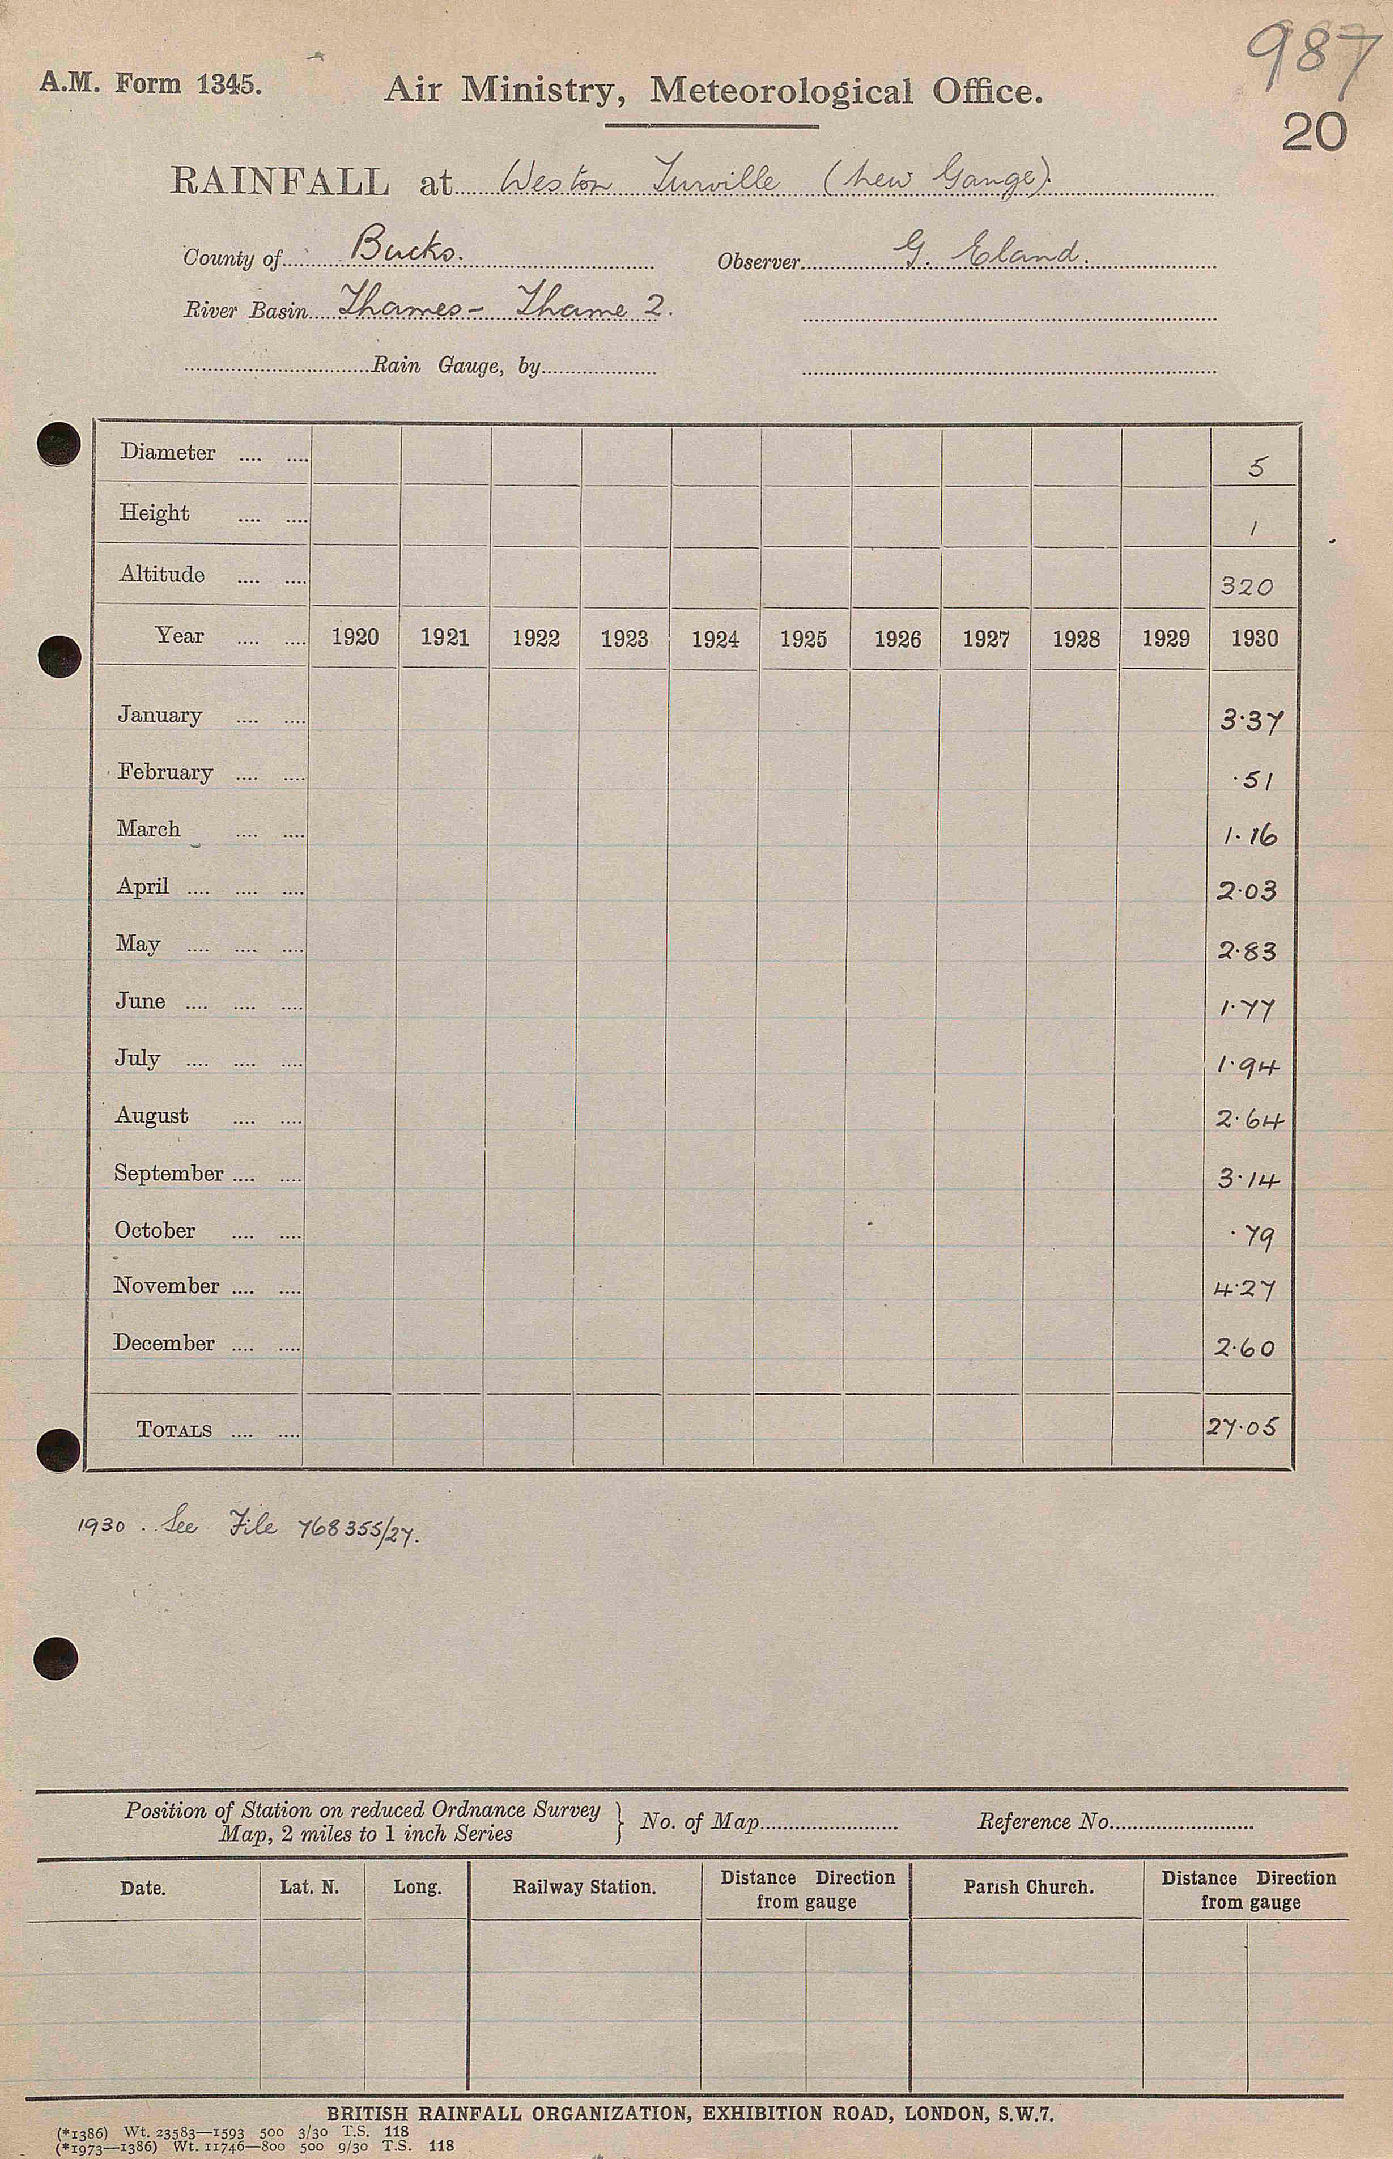 987
A.M. Form 1345. Air Ministry, Meteorological Office.
20
RAINFALL at Weston Turville (New Gauge).
County of Bucks. Observer G. Eland.
River Basin Thames - Thame 2.
Rain Gauge, by
Diameter .... .... 5
Height .... .... 1
Altitude .... .... 320
Year .... .... 1920 1921 1922 1923 1924 1925 1926 1927 1928 1929 1930
January .... .... 3·37
February .... .... ·51
March .... .... 1·16
April .... .... .... 2·03
May .... .... .... 2·83
June .... .... .... 1·77
July .... .... .... 1·94
August .... .... 2·64
September .... .... 3·14
October .... .... ·79
November .... .... 4·27
December .... .... 2·60
TOTALS .... .... 27·05
1930 . See File 768355/27.
Position of Station on reduced Ordnance Survey } No. of Map Reference No.
Map, 2 miles to 1 inch Series
Date. Lat. N. Long. Railway Station. Distance Direction Parish Church. Distance Direction
from gauge from gauge
BRITISH RAINFALL ORGANIZATION, EXHIBITION ROAD, LONDON, S.W.7.
(*1386) Wt. 23583—1593 500 3/30 T.S. 118
(*1973—1386) Wt. 11746—800 500 9/30 T.S. 118